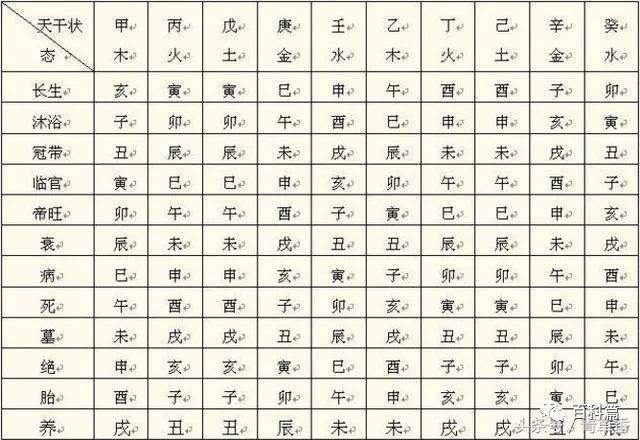 天干状 甲 丙 戊 庚 壬 乙 丁 己 辛 癸
态 木 火 土 金 水 木 火 土 金 水
长生 亥 寅 寅 巳 申 午 酉 酉 子 卯
沐浴 子 卯 卯 午 酉 巳 申 申 亥 寅
冠带 丑 辰 辰 未 戌 辰 未 未 戌 丑
临官 寅 巳 巳 申 亥 卯 午 午 酉 子
帝旺 卯 午 午 酉 子 寅 巳 巳 申 亥
衰 辰 未 未 戌 丑 丑 辰 辰 未 戌
病 巳 申 申 亥 寅 子 卯 卯 午 酉
死 午 酉 酉 子 卯 亥 寅 寅 巳 申
墓 未 戌 戌 丑 辰 戌 丑 丑 辰 未
绝 申 亥 亥 寅 巳 酉 子 子 卯 午
胎 酉 子 子 卯 午 申 亥 亥 寅 巳
养 戌 丑 丑 辰 未 未 戌 戌 丑 辰
百科篇
头条号